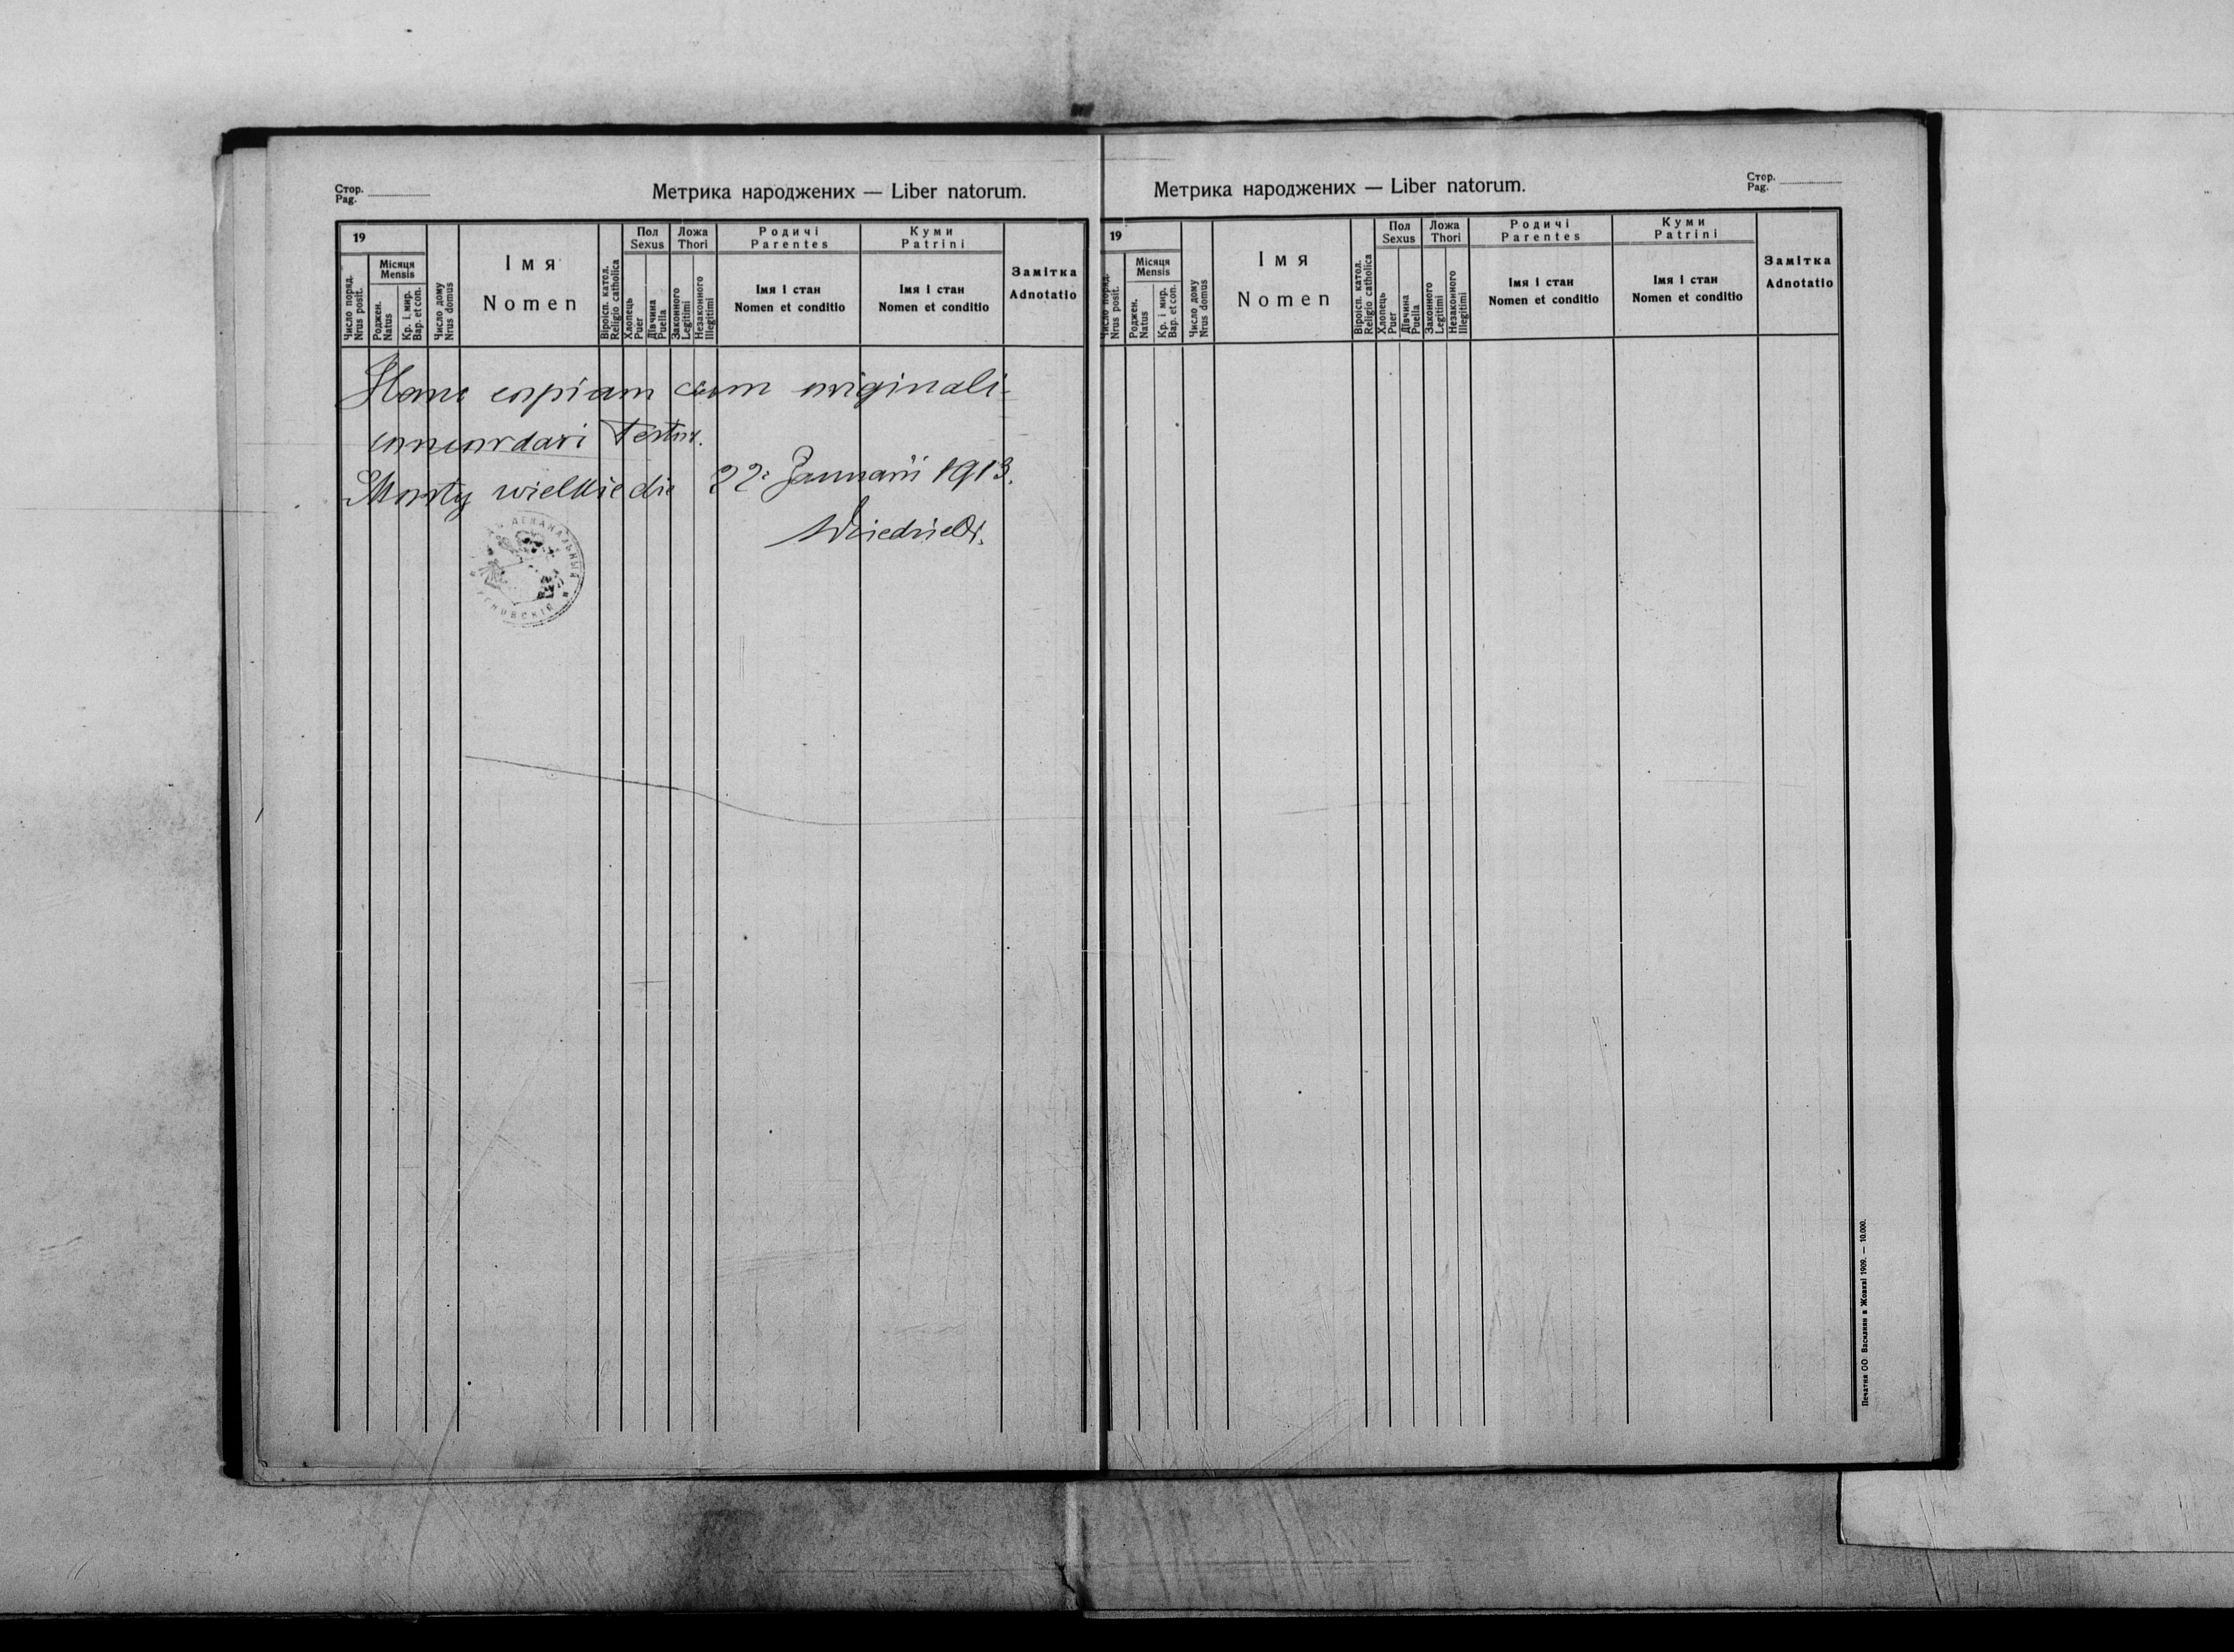 Стор.
Pag.
Метрика народжених — Liber natorum.
19
Число поряд.
Nrus posit.
Місяця
Mensis
Роджен.
Natus
Кр. і мир.
Bap. et con.
Число дому
Nrus domus
Імя
Nomen
Віроісп. катол.
Religio catholica
Пол
Sexus
Хлопець
Puer
Дївчина
Puella
Ложа
Thori
Законного
Legitimi
Незаконного
Illegitimi
Родичі
Parentes
Імя і стан
Nomen et conditio
Куми
Patrini
Імя і стан
Nomen et conditio
Замітка
Adnotatio
Hanc copiam cum originali
concordari testor.
Mosty wielkie die 22. Januarii 1913.
ДЕКАНАЛЬНЫЙ
Метрика народжених — Liber natorum.
Стор.
Pag.
19
Число поряд.
Nrus posit.
Місяця
Mensis
Роджен.
Natus
Кр. і мир.
Bap. et con.
Число дому
Nrus domus
Імя
Nomen
Віроісп. катол.
Religio catholica
Пол
Sexus
Хлопець
Puer
Дївчина
Puella
Ложа
Thori
Законного
Legitimi
Незаконного
Illegitimi
Родичі
Parentes
Імя і стан
Nomen et conditio
Куми
Patrini
Імя і стан
Nomen et conditio
Замітка
Adnotatio
Печатня ОО. Василиян в Жовкві 1909. — 10.000.